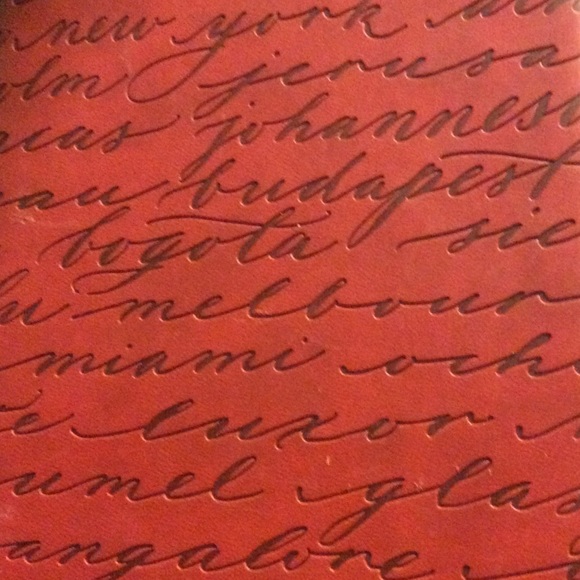 new york
olm jerusa
cas johannesb
au budapest
bogota sie
lu melbour
miami och
e luxor
umel glas
angalore